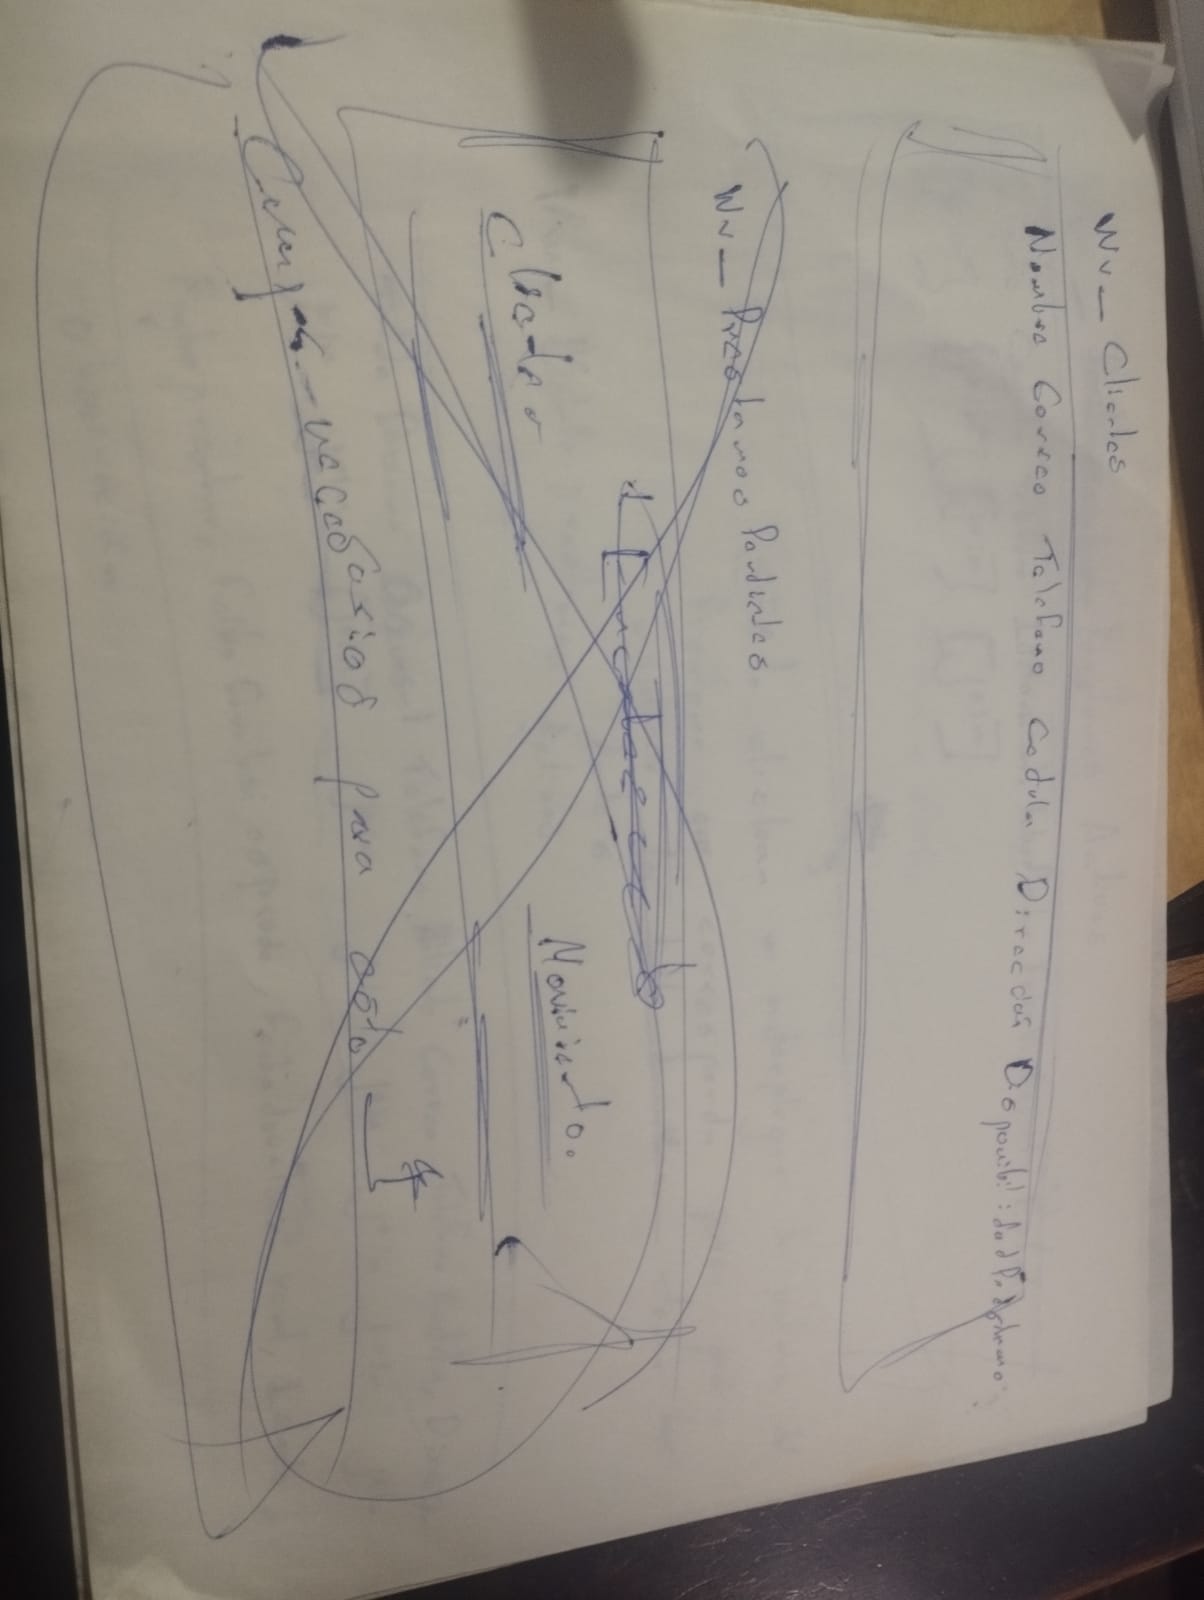 Wv_ Clientes
Nombre Correo Telefono Cedula Direccion Disponibilidad Prestamo
Wv_ Prestamos Pendientes
Clientes
Movimiento.
Campos necesarios para esto